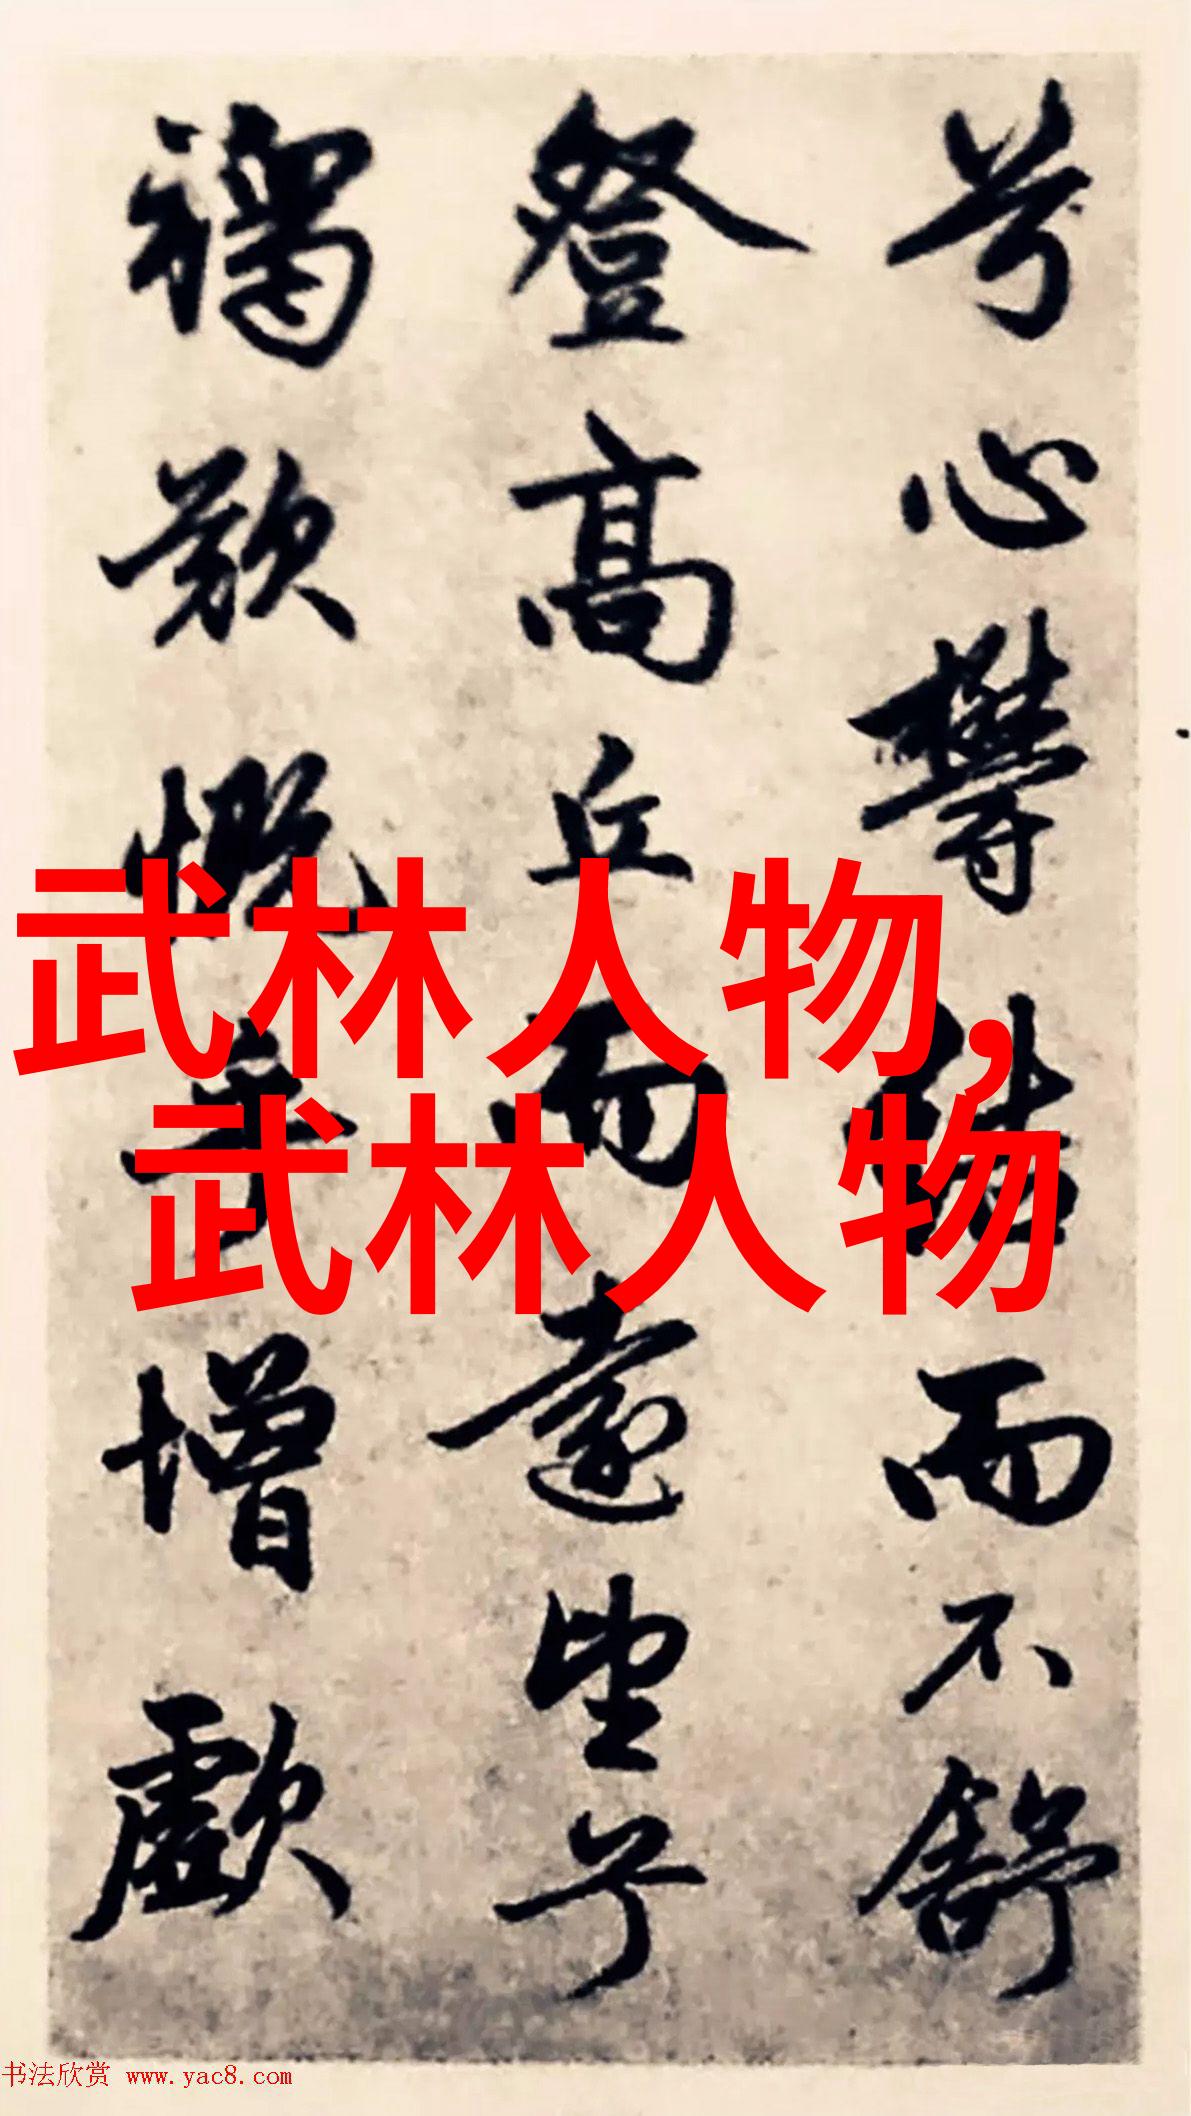 兮心欝結而不舒
登高丘而遠望兮
慨增歔
武林人物,
武林人物
书法欣赏 www.yac8.com